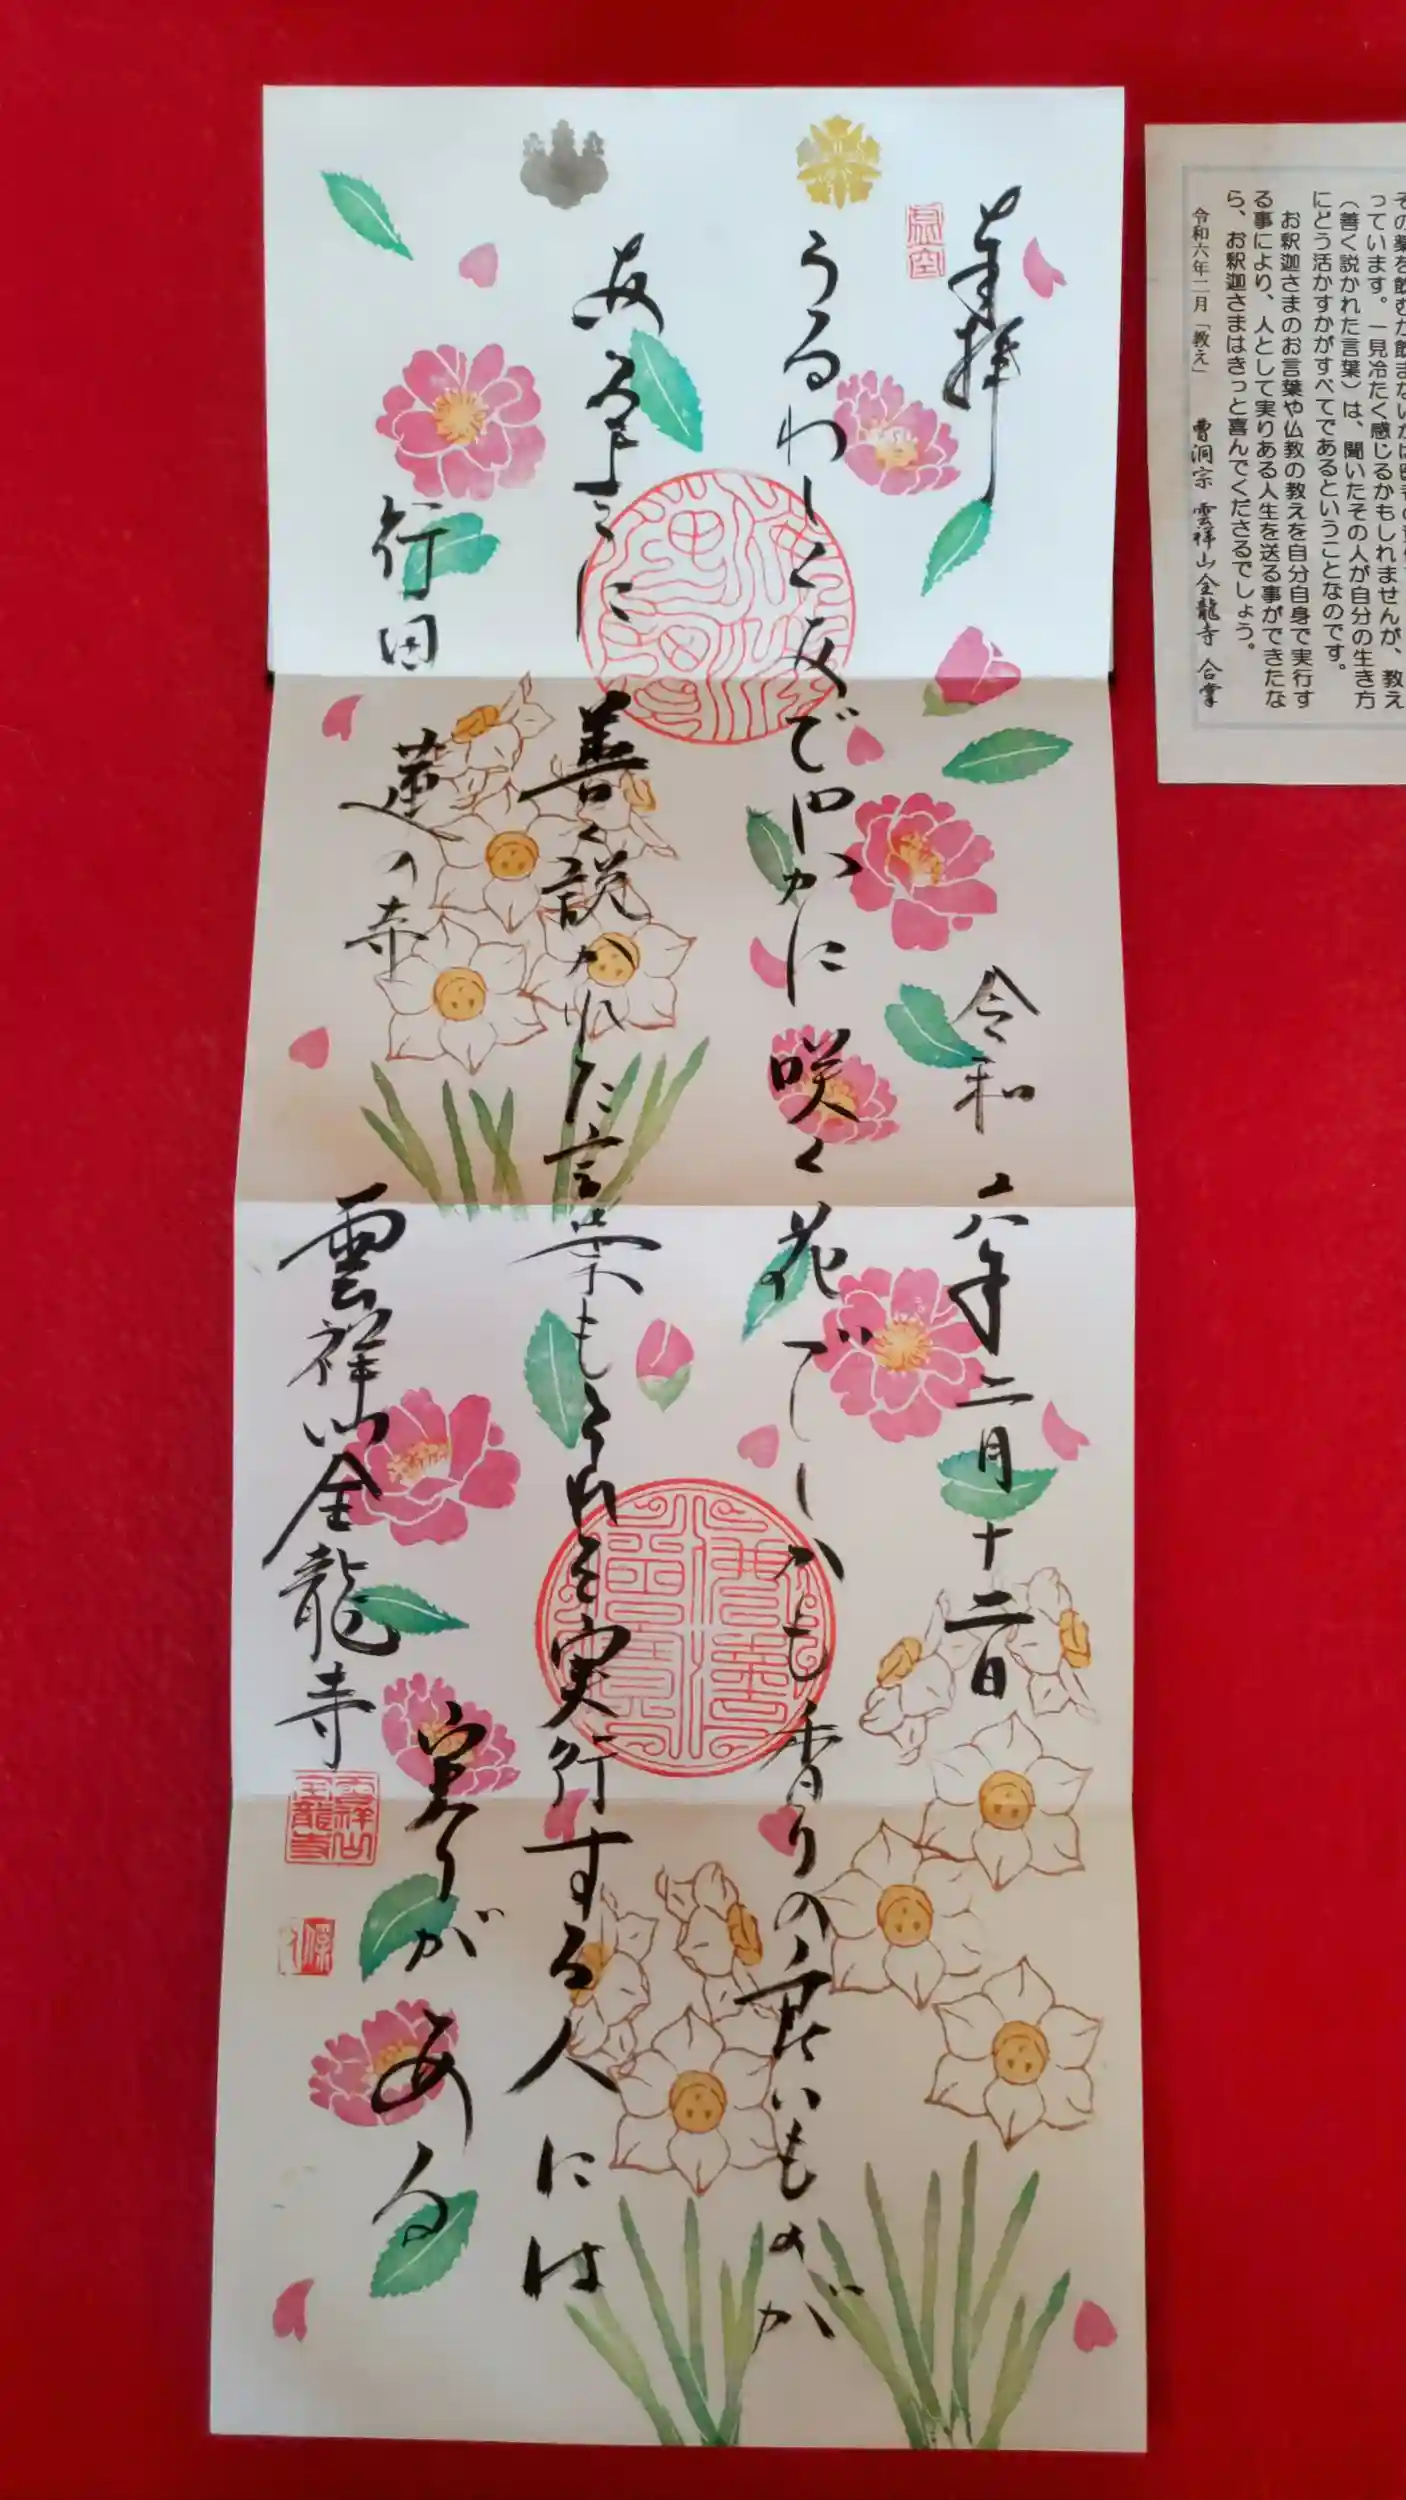 っています。一見冷たく感じるかもしれませんが、教え
（善く説かれた言葉）は、聞いたその人が自分の生き方
にどう活かすかがすべてであるということなのです。
お釈迦さまのお言葉や仏教の教えを自分自身で実行す
る事により、人として実りある人生を送る事ができたな
ら、お釈迦さまはきっと喜んでくださるでしょう。
令和六年二月「教え」 曹洞宗 雲祥山金龍寺 合掌
奉拝 令和六年二月十二日
うるわしくあでやかに咲く花でしかも香りの良いものが
あるように善く説かれた言葉もそれを実行する人には
実りがある
行田 蓮の寺
雲祥山金龍寺
雲祥山
金龍寺